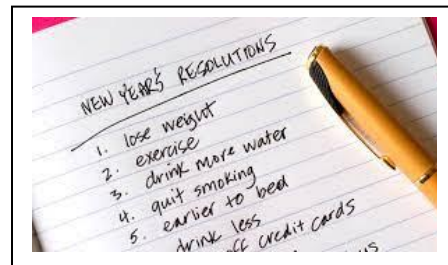 NEW YEAR'S RESOLUTIONS
1. lose weight
2. exercise
3. drink more water
4. quit smoking
5. earlier to bed
drink less
off credit cards